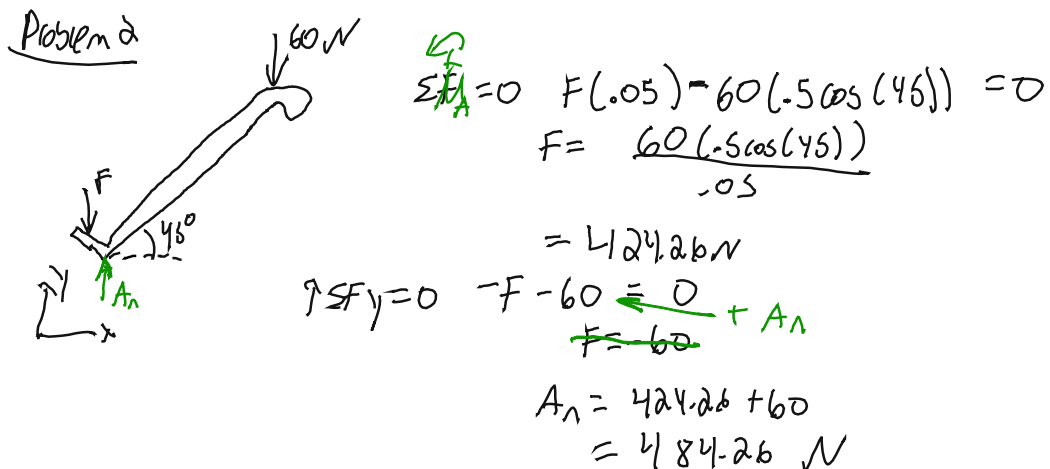 Problem 2
60 N
ΣM_A = 0 F(.05) - 60(.5cos(45)) = 0
F = 60(.5cos(45))
.05
F
45°
= 424.26 N
A_n
↑ΣFy = 0 -F - 60 = 0
+ A_n
y
x
F = -60
A_n = 424.26 + 60
= 484.26 N